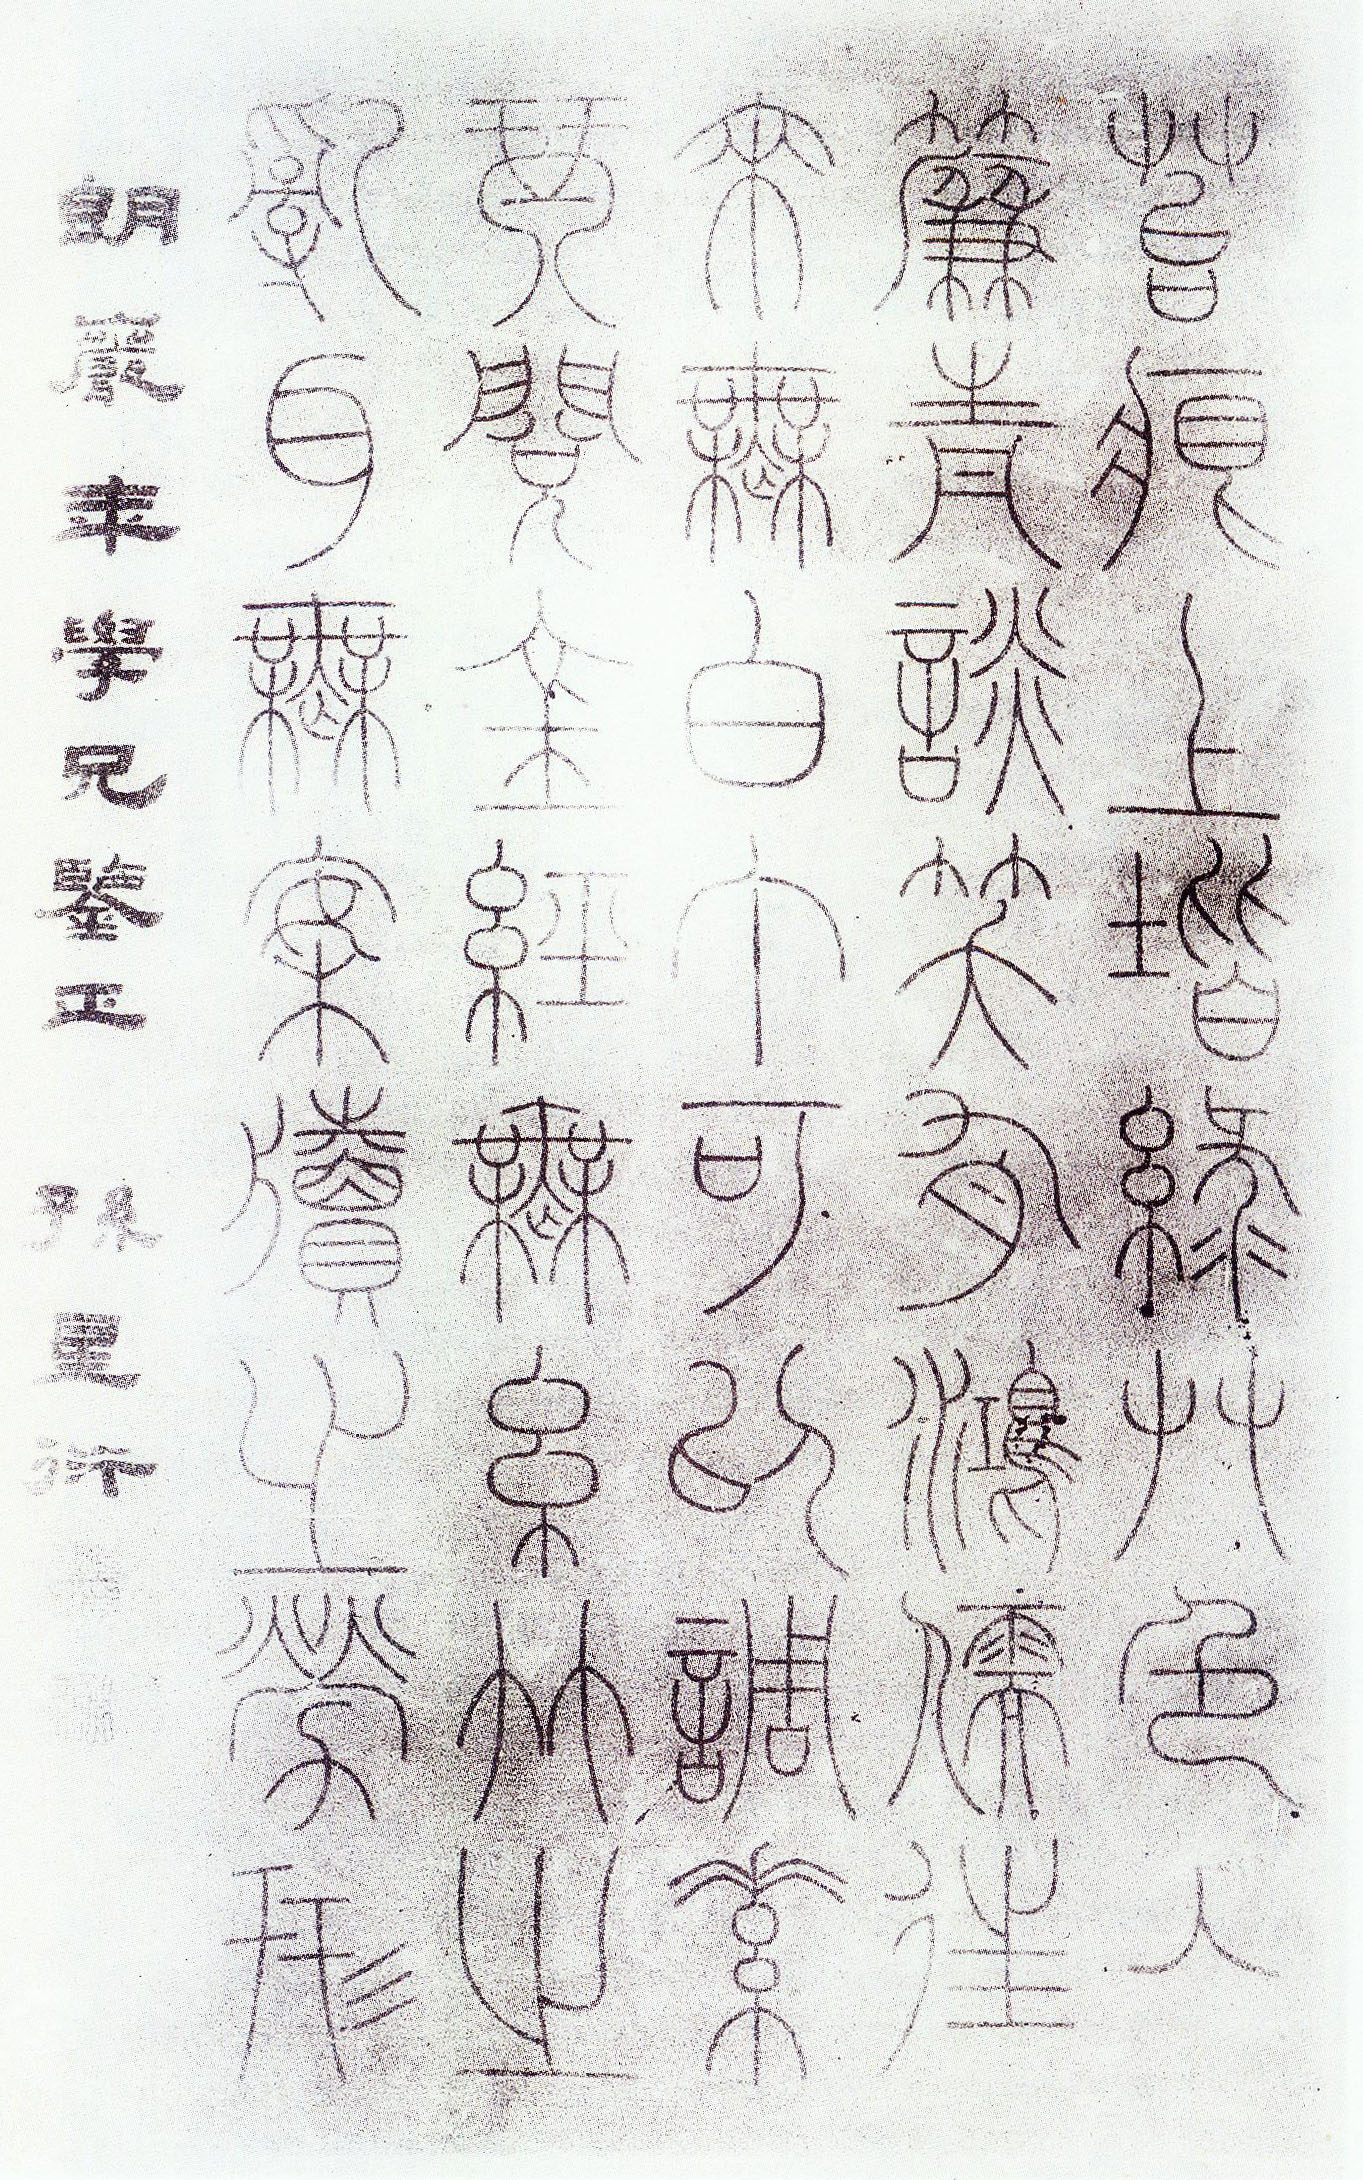 苔痕上堦緑艸色入
簾青談笑有鴻儒往
來無白丁可以調素
琴閱金經無糸竹之
亂耳無案牘之勞形
朗巖年學兄鑒正 孫星衍